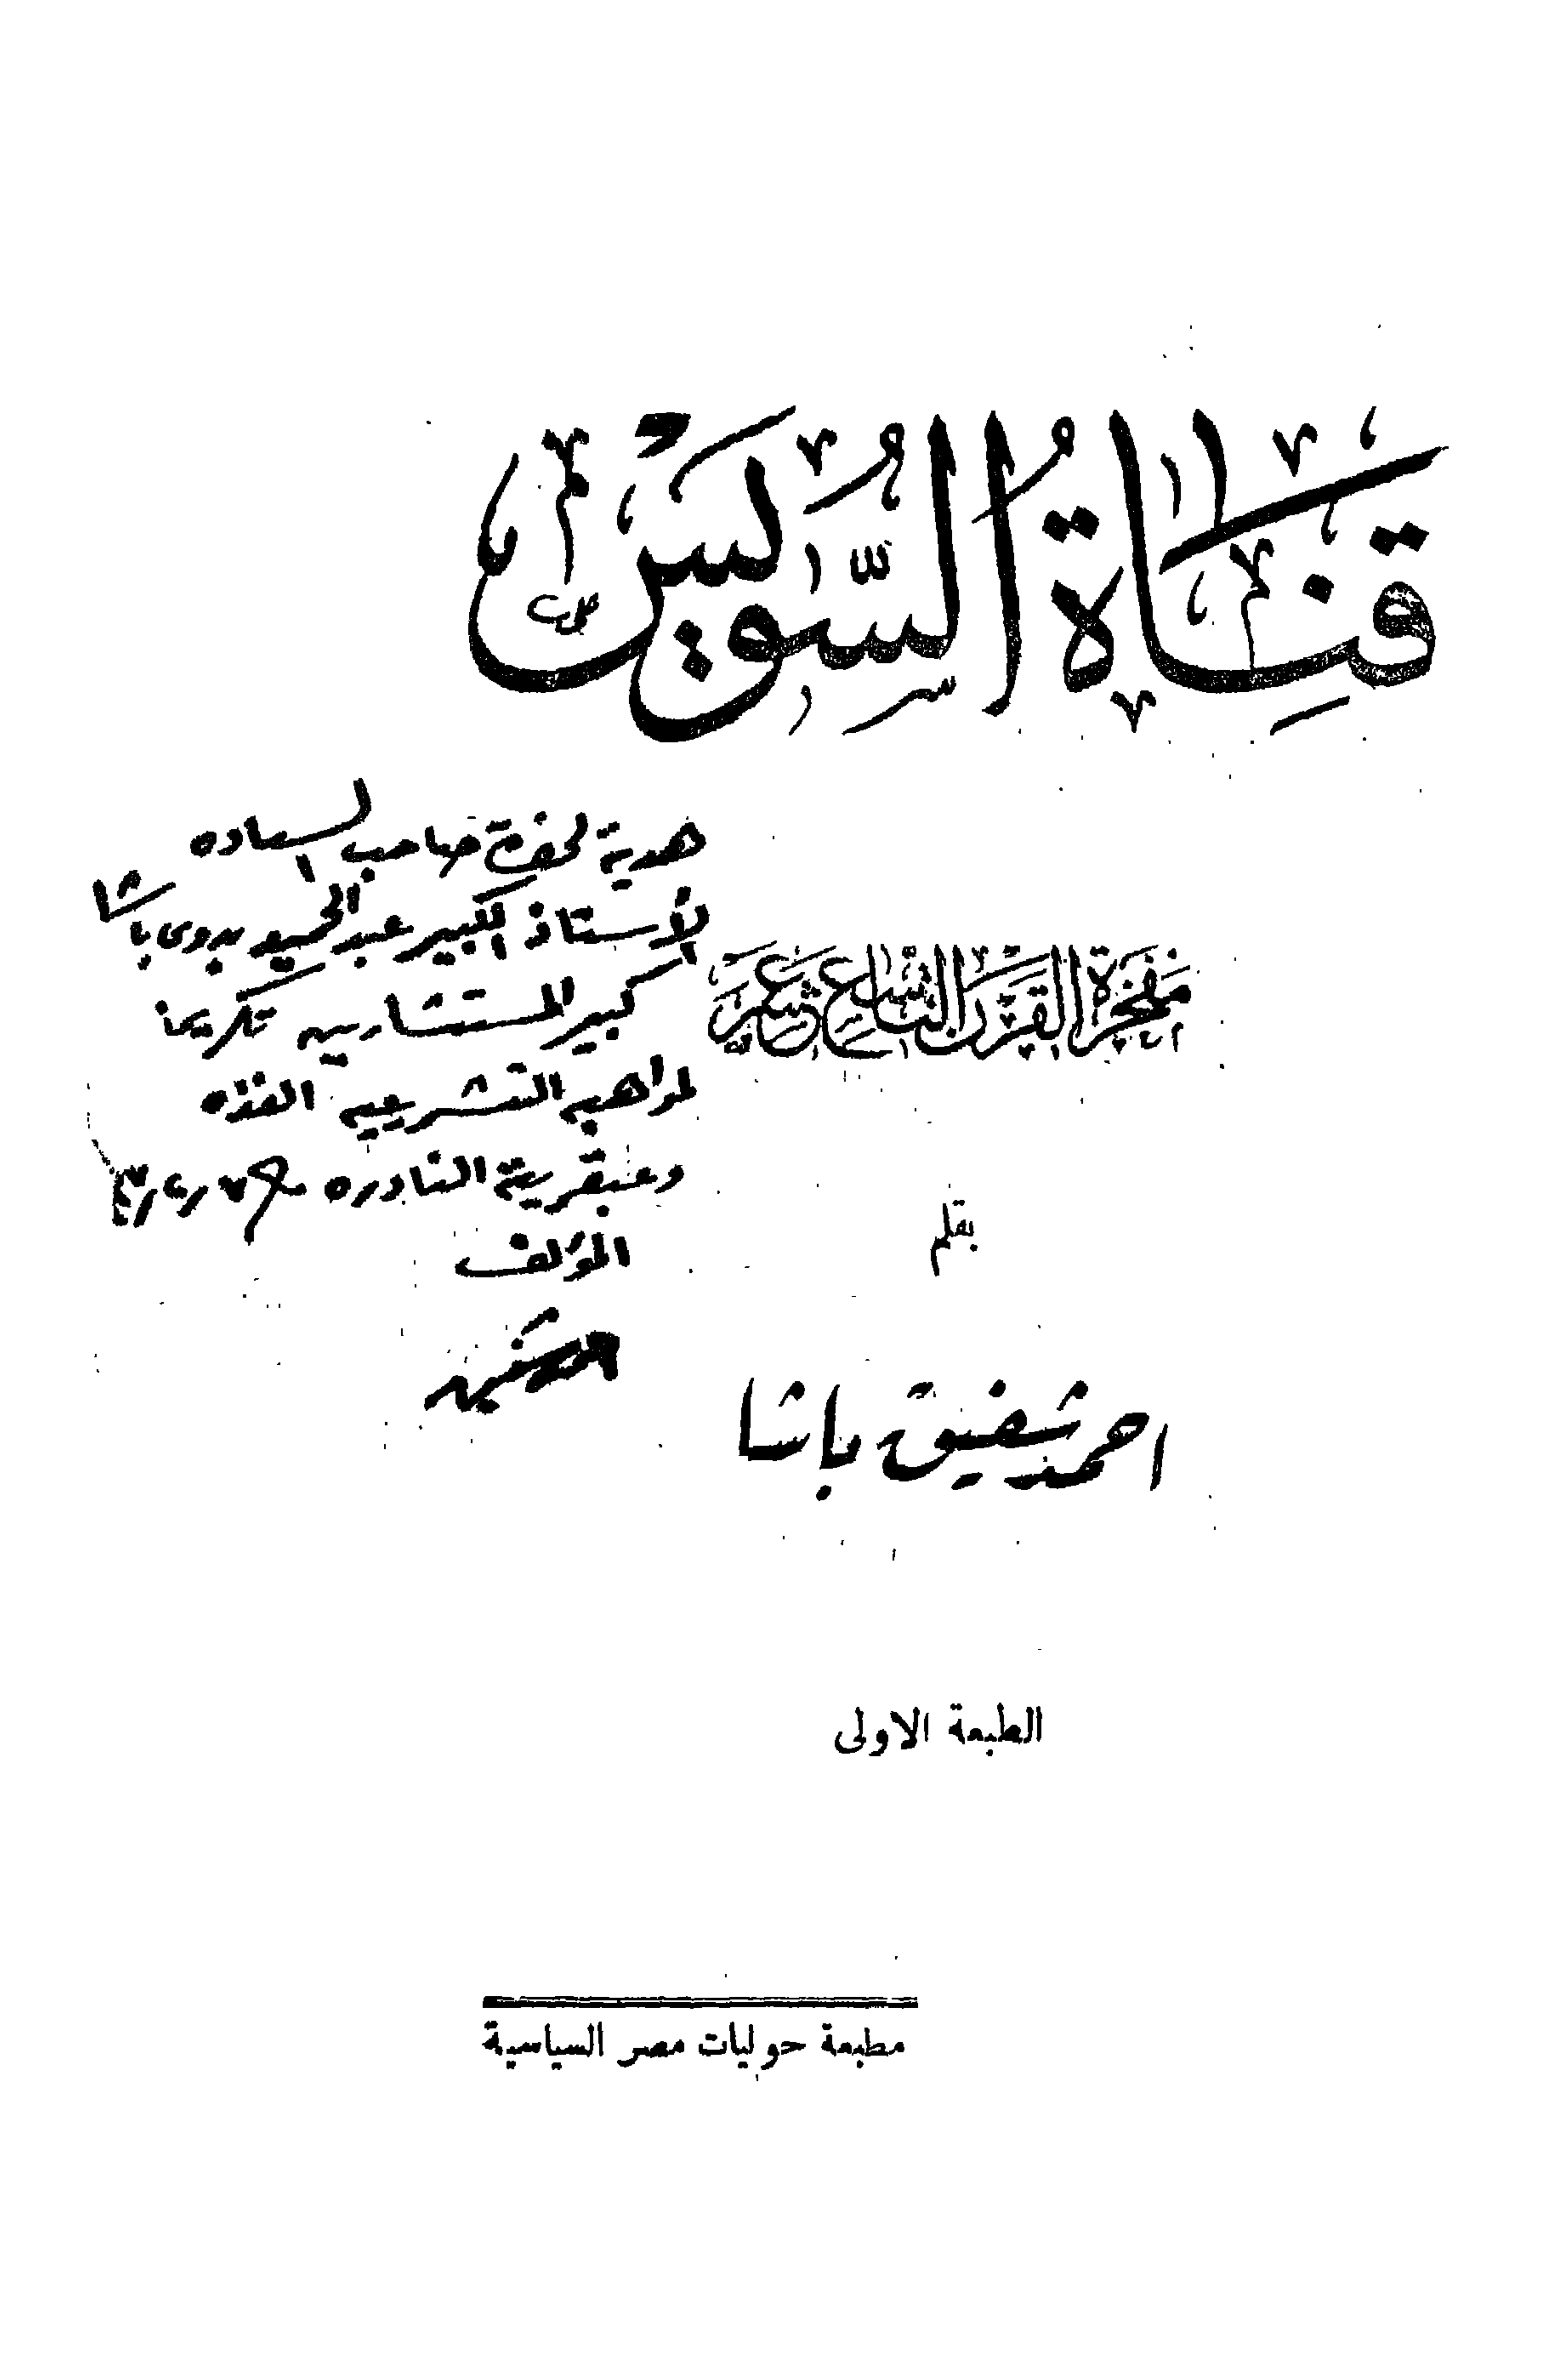 قناة السويس
هدية لحضرة صاحب السعاده
الأستاذ الكبير عبد الحميد بدوى باشا
كبير المستشارين تكريما
لمواهبه التشريعيه الفذه
وعبقريته النادره
المؤلف
مفخرة القرن التاسع عشر
بقلم
احمد شفيق باشا
الطبعة الاولى
مطبعة حوليات مصر السياسية